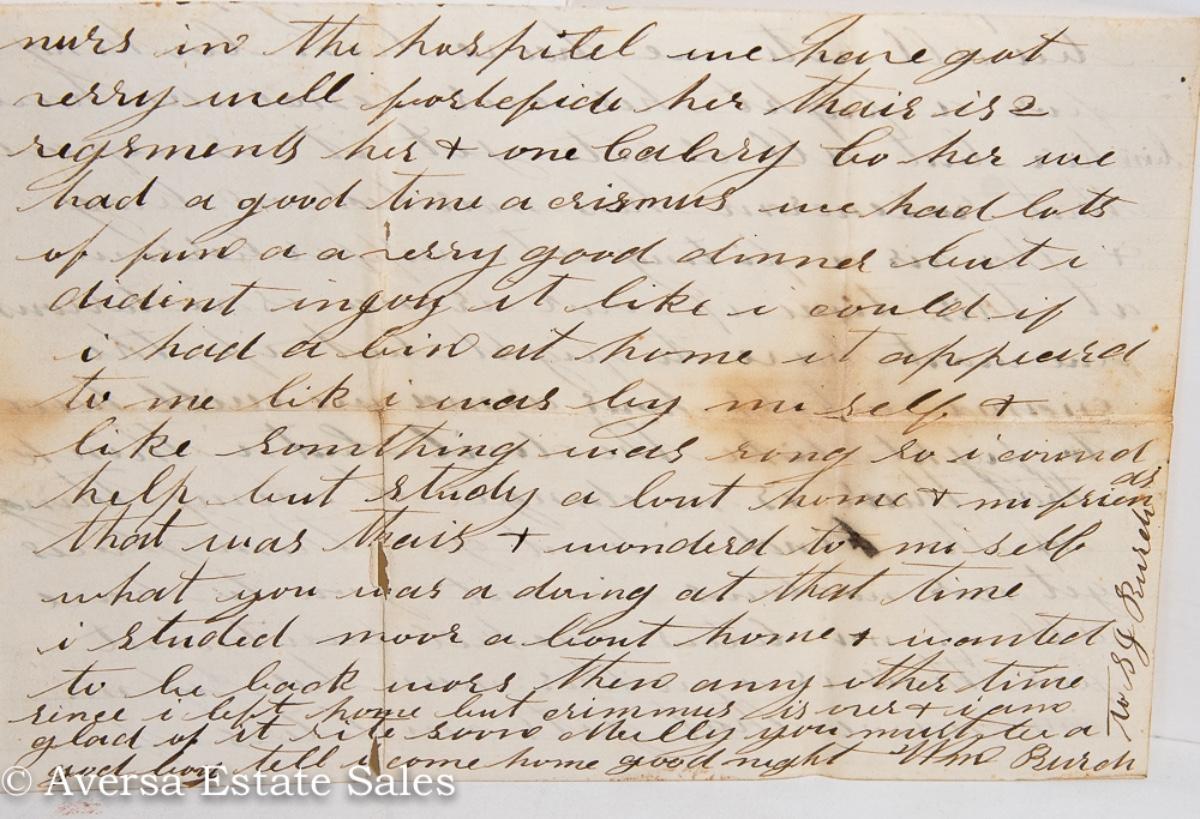 nurs in the hospitel we have got
verry well fortefide her thair is 2
regsments her & one Calvry Co her we
had a good time a crismus we had lots
of fun a a verry good dinner but i
didint injoy it like i could if
i had a bin at home it appeard
to me like i was by mi self &
like somthing was rong so i cound
help but study a bout home & mi friends
that was thair & wonderd to mi self
what you was a doing at that time
i studed moor a bout home & wanted
to be back wors then anny other time
since i left home but crimmus is over & i am
glad of it rite soon Mully you must be a
good boy tell i come home good night Wm Burch
to S J Burch
© Aversa Estate Sales